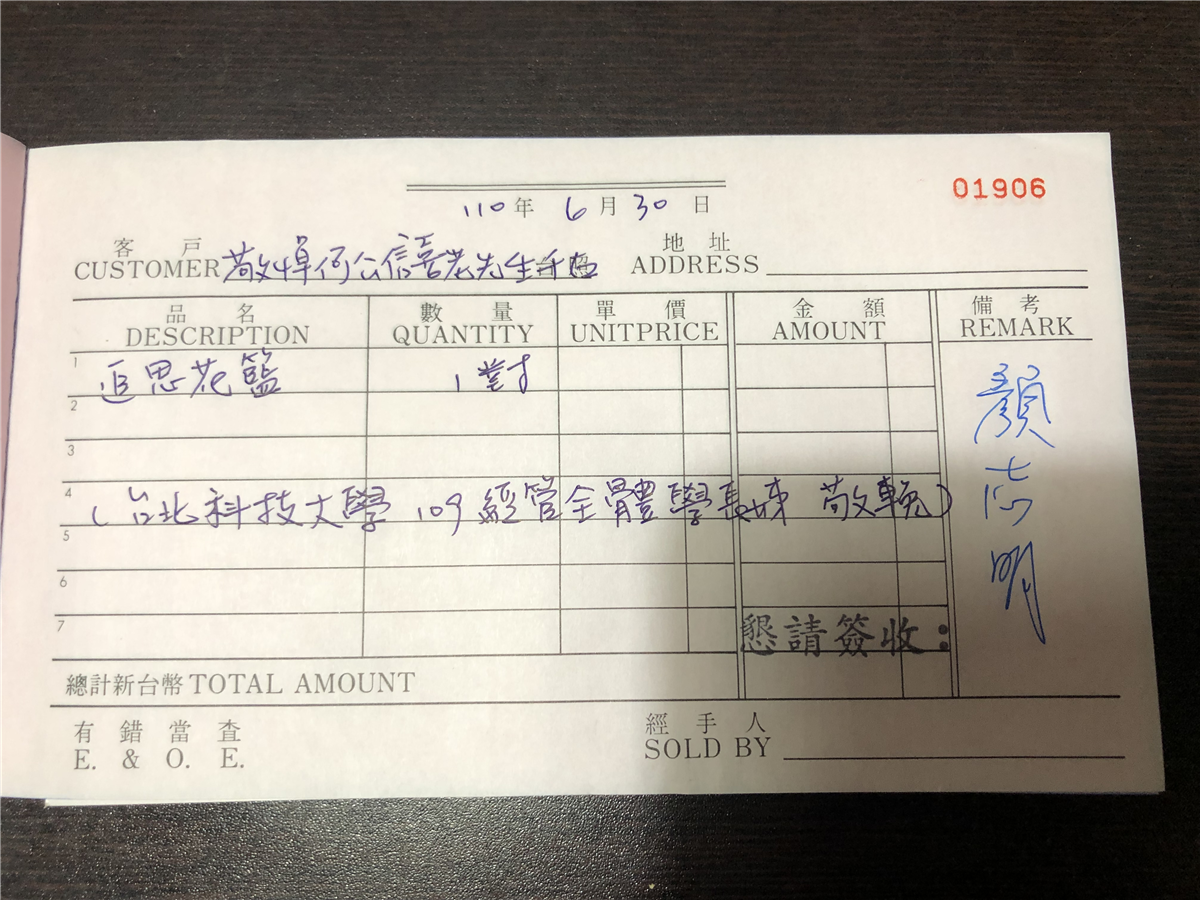 01906
110年 6月30日
客戶 地址
CUSTOMER 敬悼何公信喜老先生千古 ADDRESS
品名 數量 單價 金額 備考
DESCRIPTION QUANTITY UNITPRICE AMOUNT REMARK
1 追思花籃 1對
2
3
4 (台北科技大學 109 經管全體學長姊 敬輓)
5
6
7 懇請簽收:
顏志明
總計新台幣 TOTAL AMOUNT
有錯當查 經手人
E. & O. E. SOLD BY